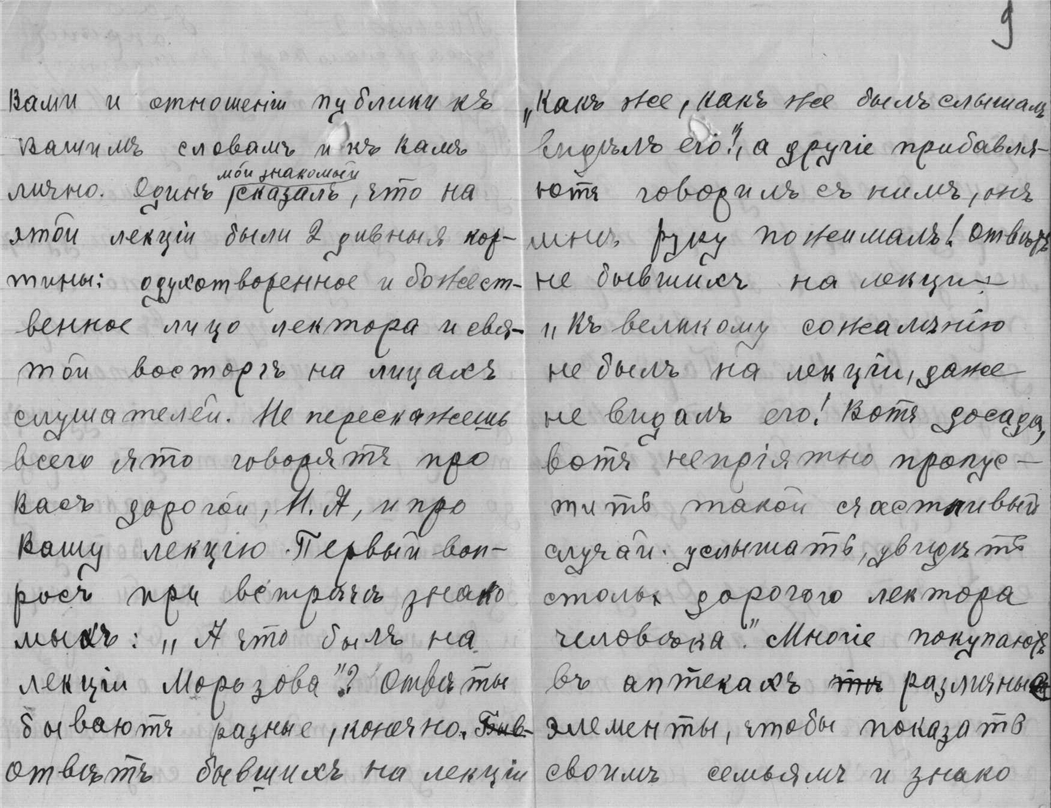 9
Вами и отношеніи публики къ
Вашимъ словамъ и къ Вамъ
мой знакомый
лично. Одинъ сказалъ, что на
этой лекціи были 2 дивныя кар-
тины: одухотворенное и божест-
венное лицо лектора и свя-
той восторгъ на лицахъ
слушателей. Не перескажешь
всего что говорятъ про
Васъ дорогой, Н. А, и про
Вашу лекцію. Первый воп-
росъ при встрѣчѣ знако
мыхъ: „А что былъ на
лекціи Морозова"? Отвѣты
бываютъ разные, конечно. Быв-
Отвѣтъ бывшихъ на лекціи
„Какъ же, какъ же былъ слышалъ
видѣлъ его!", а другіе прибавля-
ютъ говорилъ съ нимъ, онъ
мнѣ руку пожималъ! Отвѣтъ
не бывшихъ на лекціи
„Къ великому сожалѣнію
не былъ на лекціи, даже
не видалъ его! Вотъ досада,
вотъ непріятно пропус-
тить такой счастливый
случай. услышать, увидѣть
столь дорогого лектора
человѣка." Многіе покупаютъ
въ аптекахъ различные
элементы, чтобы показать
своимъ семьямъ и знако